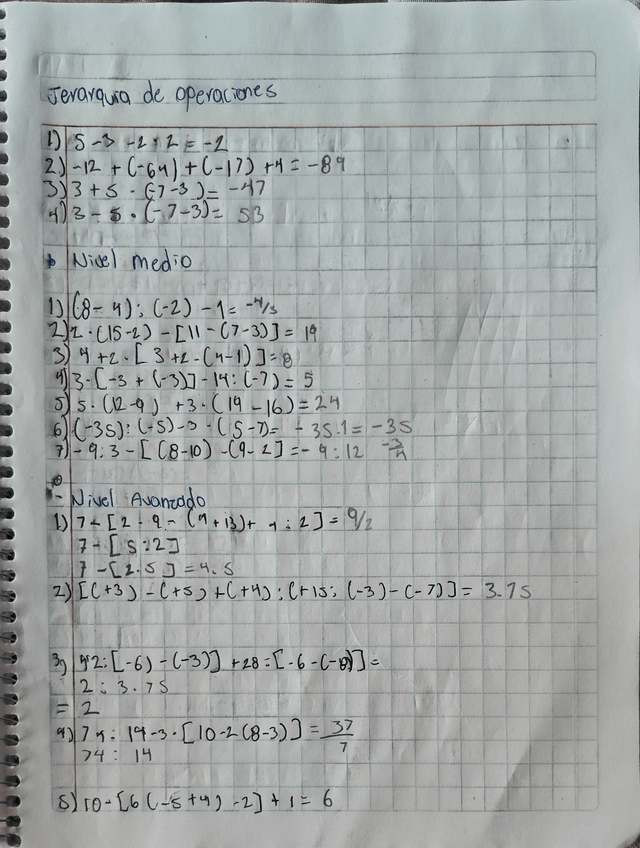 Jerarquia de operaciones
1) 5 - 3 - 2 + 2 = -2
2) -12 + (-64) + (-17) + 4 = -89
3) 3 + 5 · (-7-3) = -47
4) 3 - 5 · (-7-3) = 53
Nivel medio
1) (8-4) : (-2) - 1 = -4/3
2) 2 · (15-2) - [11 - (7-3)] = 19
3) 4 + 2 · [3 + 2 - (4-1)] = 8
4) 3 · [-3 + (-3)] - 14 : (-7) = 5
5) 5 · (12-9) + 3 · (19-16) = 24
6) (-35) : (-5) - 3 - (5-7) = -35 · 1 = -35
7) -9 : 3 - [(8-10) - (9-2] = -9 : 12 -3/4
- Nivel Avanzado
1) 7 - [2 - 9 - (4+13) + 4 : 2] = 9/2
7 - [5 : 2]
7 - [2.5] = 4.5
2) [(+3) - (+5) + (+4) : (+15 : (-3) - (-7)] = 3.75
3) 42 : [-6) - (-3)] + 28 : [-6 - (-8)] =
2 : 3.75
= 2
4) 74 : 14 - 3 · [10 - 2 (8-3)] = 37/7
74 : 14
5) 10 - [6 (-5+4) - 2] + 1 = 6